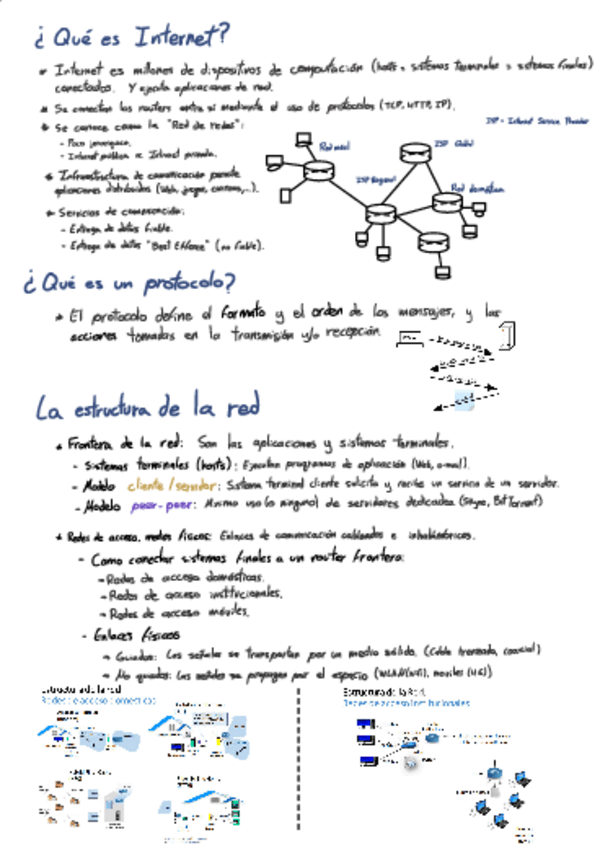 ¿Qué es Internet?
* Internet es millones de dispositivos de computación (hosts = sistemas terminales = sistemas finales)
conectados. Y ejecuta aplicaciones de red.
* Se conectan los routers entre sí mediante el uso de protocolos (TCP, HTTP, IP).
* Se conoce como la "Red de redes":
- Poco jerárquico.
- Internet pública vs Internet privada.
* Infraestructura de comunicación permite
aplicaciones distribuidas (Web, juegos, correos,...).
* Servicios de comunicación:
- Entrega de datos fiable.
- Entrega de datos "Best Efforce" (no fiable).
ISP = Internet Service Provider
Red movil
ISP Global
ISP Regional
Red doméstica
¿Qué es un protocolo?
* El protocolo define el formato y el orden de los mensajes, y las
acciones tomadas en la transmisión y/o recepción
La estructura de la red
* Frontera de la red: Son las aplicaciones y sistemas terminales.
- Sistemas terminales (hosts): Ejecutan programas de aplicación (Web, e-mail).
- Modelo cliente/servidor: Sistema terminal cliente solicita y recibe un servicio de un servidor.
- Modelo peer-peer: Mínimo uso (o ninguno) de servidores dedicados (Skype, BitTorrent)
* Redes de acceso, medios físicos: Enlaces de comunicación cableados e inhalámbricos.
- Como conectar sistemas finales a un router frontera:
- Redes de acceso domésticas.
- Redes de acceso institucionales.
- Redes de acceso móviles.
- Enlaces físicos
→ Guiados: Las señales se transportan por un medio sólido. (Cable trenzado, coaxial)
→ No guiados: Las señales se propagan por el espacio (WLAN(wifi), moviles (4G))
Estructura de la red
Redes de acceso domesticas
Estructura de la Red.
Redes de acceso institucionales